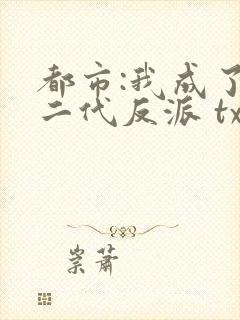 都市:我成了
二代反派 tx
崇萧